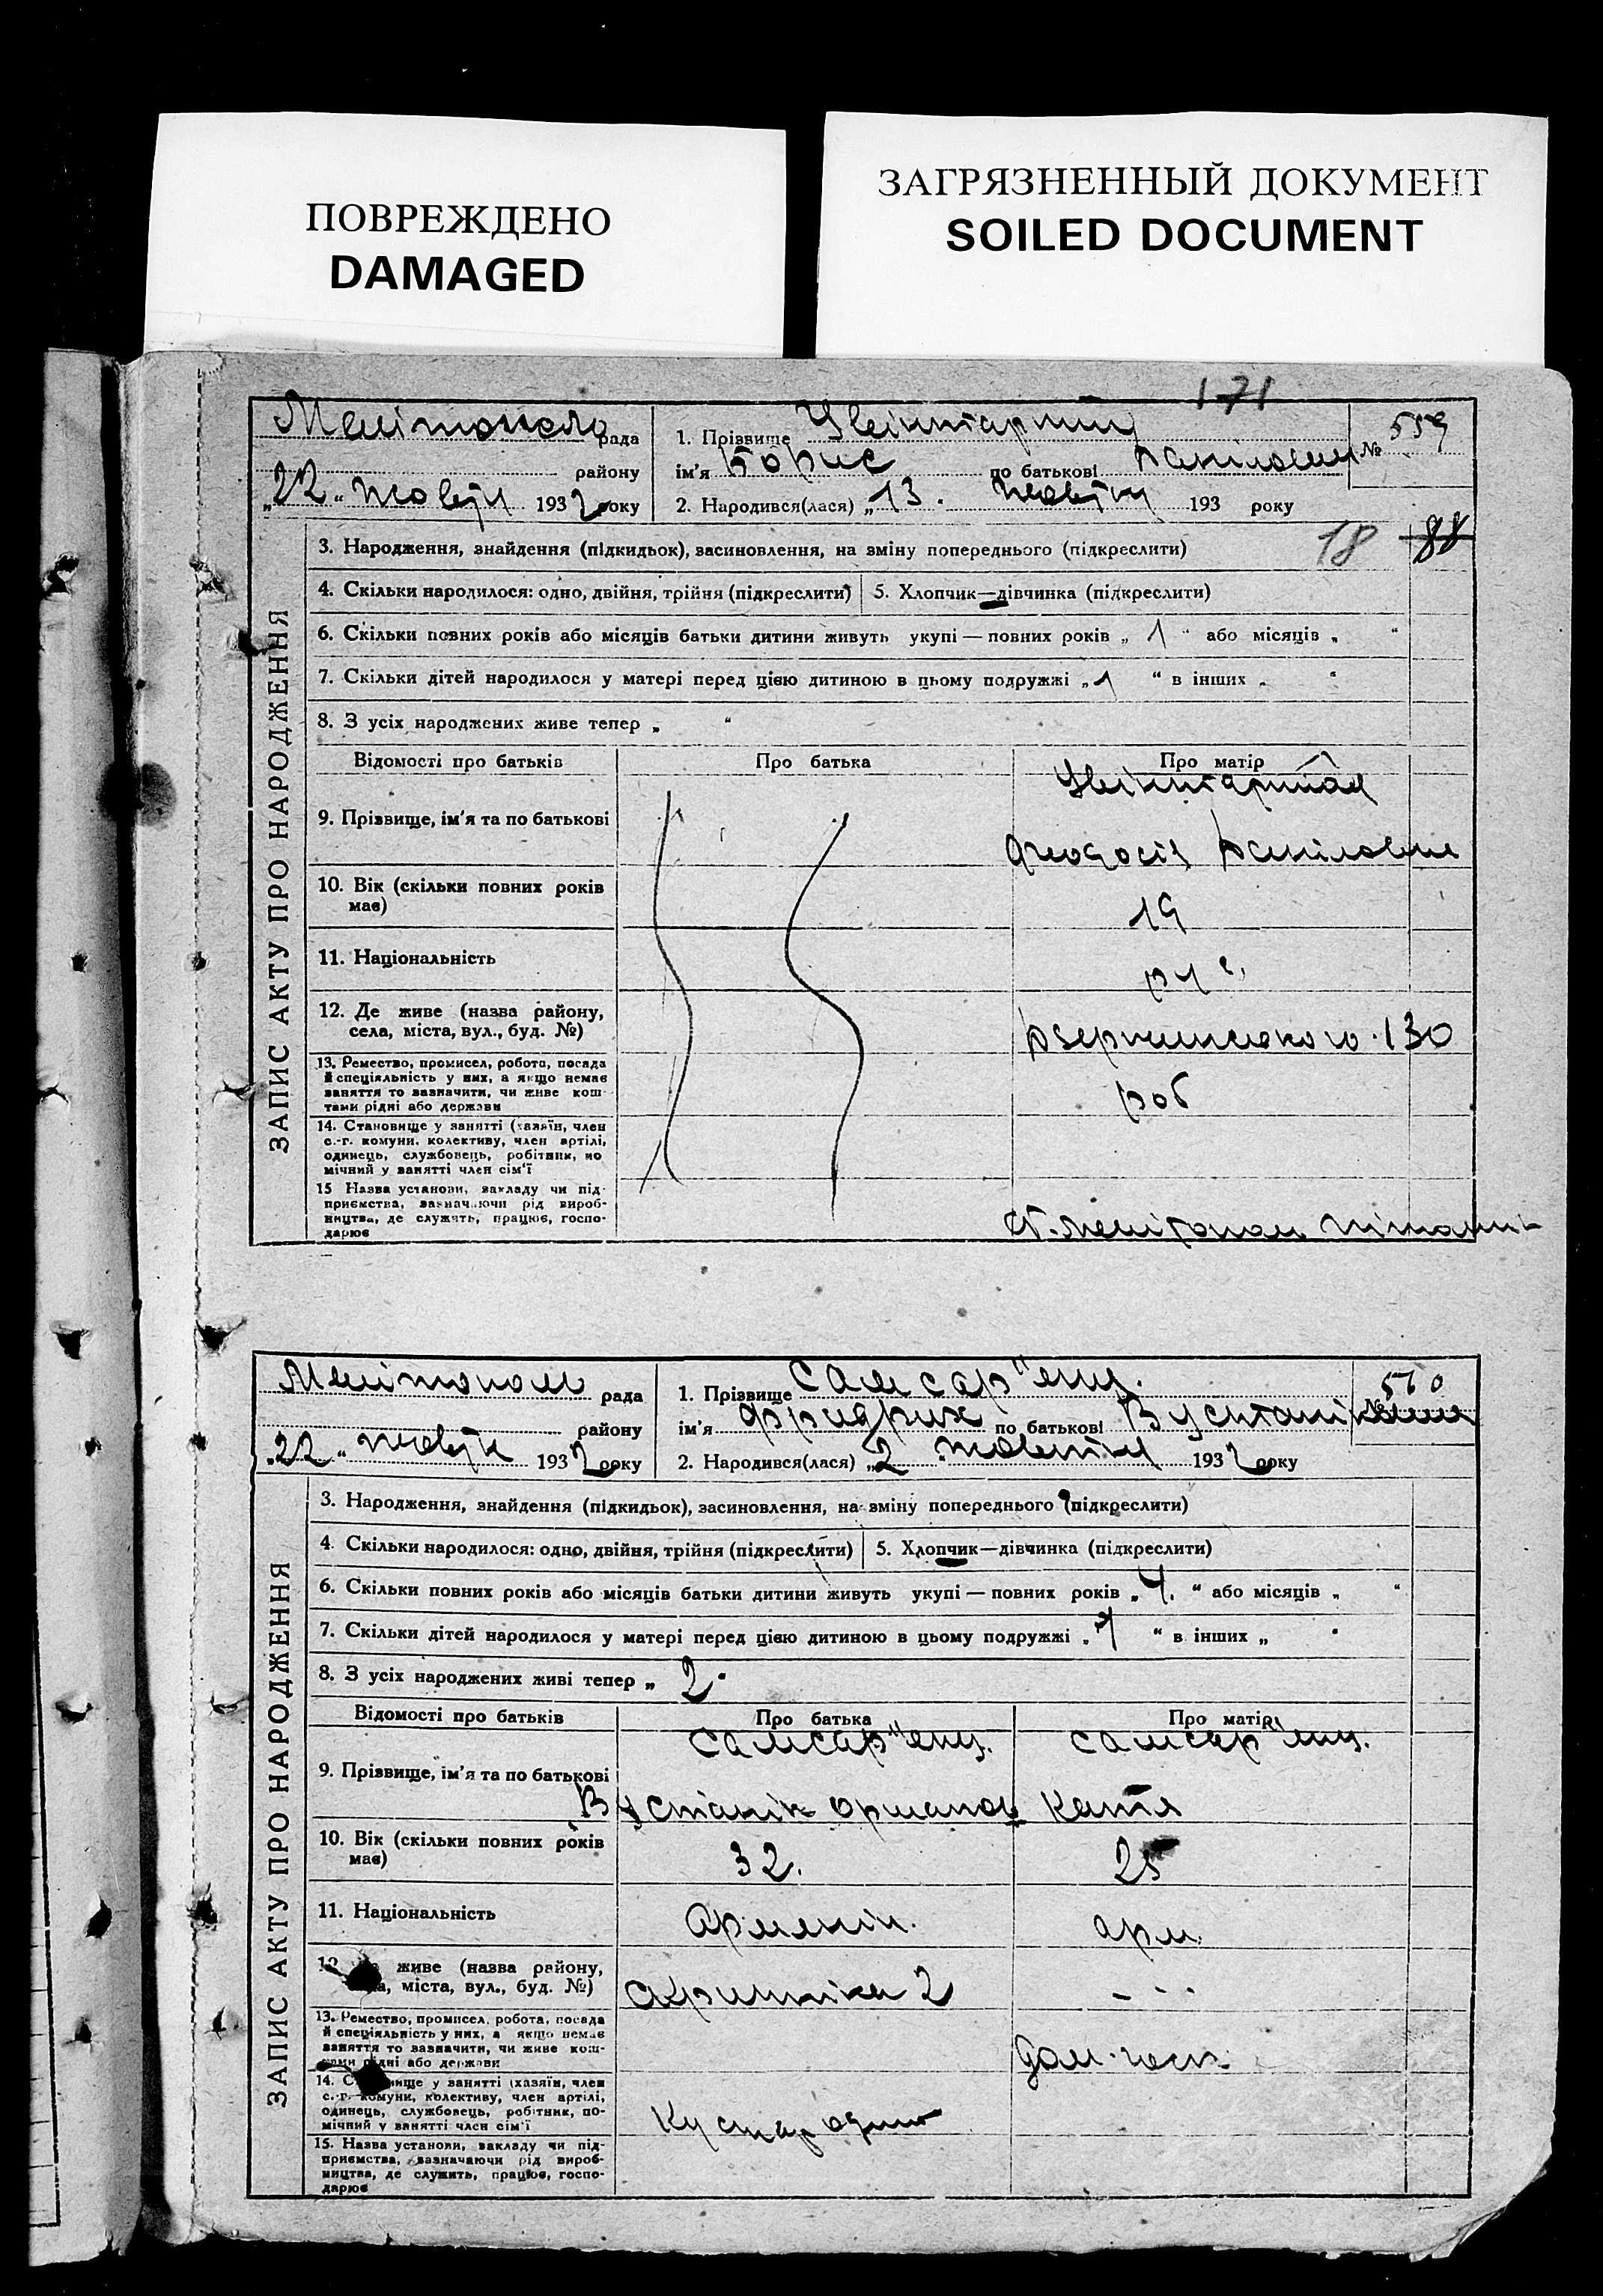 ПОВРЕЖДЕНО
DAMAGED
ЗАГРЯЗНЕННЫЙ ДОКУМЕНТ
SOILED DOCUMENT
171
рада
району
„22“ 1932 року
1. Прізвище
№ 559
ім'я Борис по батькові
2. Народився(лася) „13. 193 року
ЗАПИС АКТУ ПРО НАРОДЖЕННЯ
3. Народження, знайдення (підкидьок), засиновлення, на зміну попереднього (підкреслити) 18 88
4. Скільки народилося: одно, двійня, трійня (підкреслити) 5. Хлопчик—дівчинка (підкреслити)
6. Скільки повних років або місяців батьки дитини живуть укупі — повних років „ 1 “ або місяців „ “
7. Скільки дітей народилося у матері перед цією дитиною в цьому подружжі „ 1 “ в інших „ “
8. З усіх народжених живе тепер „ “
Відомості про батьків Про батька Про матір
9. Прізвище, ім'я та по батькові
10. Вік (скільки повних років
має) 19
11. Національність
12. Де живе (назва району,
села, міста, вул., буд. №) Дзержинського 130
13. Ремество, промисел, робота, посада
й спеціяльність у них, а якщо немає
заняття то зазначити, чи живе кош-
тами рідні або держави
роб
14. Становище у занятті (хазяїн, член
с.-г. комуни, колективу, член артілі,
одинець, службовець, робітник, по
мічний у занятті член сім'ї
15 Назва установи, закладу чи під-
приємства, зазначаючи рід вироб-
ництва, де служить, працює, госпо-
дарює
Мелітополь рада
району
„22“ 1932 року
1. Прізвище Самсар"янц.
560
ім'я Фридрих по батькові
2. Народився(лася) „2 1932 року
ЗАПИС АКТУ ПРО НАРОДЖЕННЯ
3. Народження, знайдення (підкидьок), засиновлення, на зміну попереднього (підкреслити)
4. Скільки народилося: одно, двійня, трійня (підкреслити) 5. Хлопчик—дівчинка (підкреслити)
6. Скільки повних років або місяців батьки дитини живуть укупі — повних років „ 4. “ або місяців „ “
7. Скільки дітей народилося у матері перед цією дитиною в цьому подружжі „ “ в інших „ “
8. З усіх народжених живі тепер „ 2.
Відомості про батьків Про батька Про матір
Самсар"янц. Самсар"янц.
9. Прізвище, ім'я та по батькові
Катя
10. Вік (скільки повних років
має) 32. 25
11. Національність Арменін. арм.
живе (назва району,
міста, вул., буд. №) 2
13. Ремество, промисел, робота, посада
й спеціяльність у них, а якщо немає
заняття то зазначити, чи живе кош-
рідні або держави
дом. госп.
14. у занятті (хазяїн, член
с.-г. комуни, колективу, член артілі,
одинець, службовець, робітник, по-
мічний у занятті член сім'ї
Кустар один
15. Назва установи, закладу чи під-
приємства, зазначаючи рід вироб-
ництва, де служить, працює, госпо-
дарює